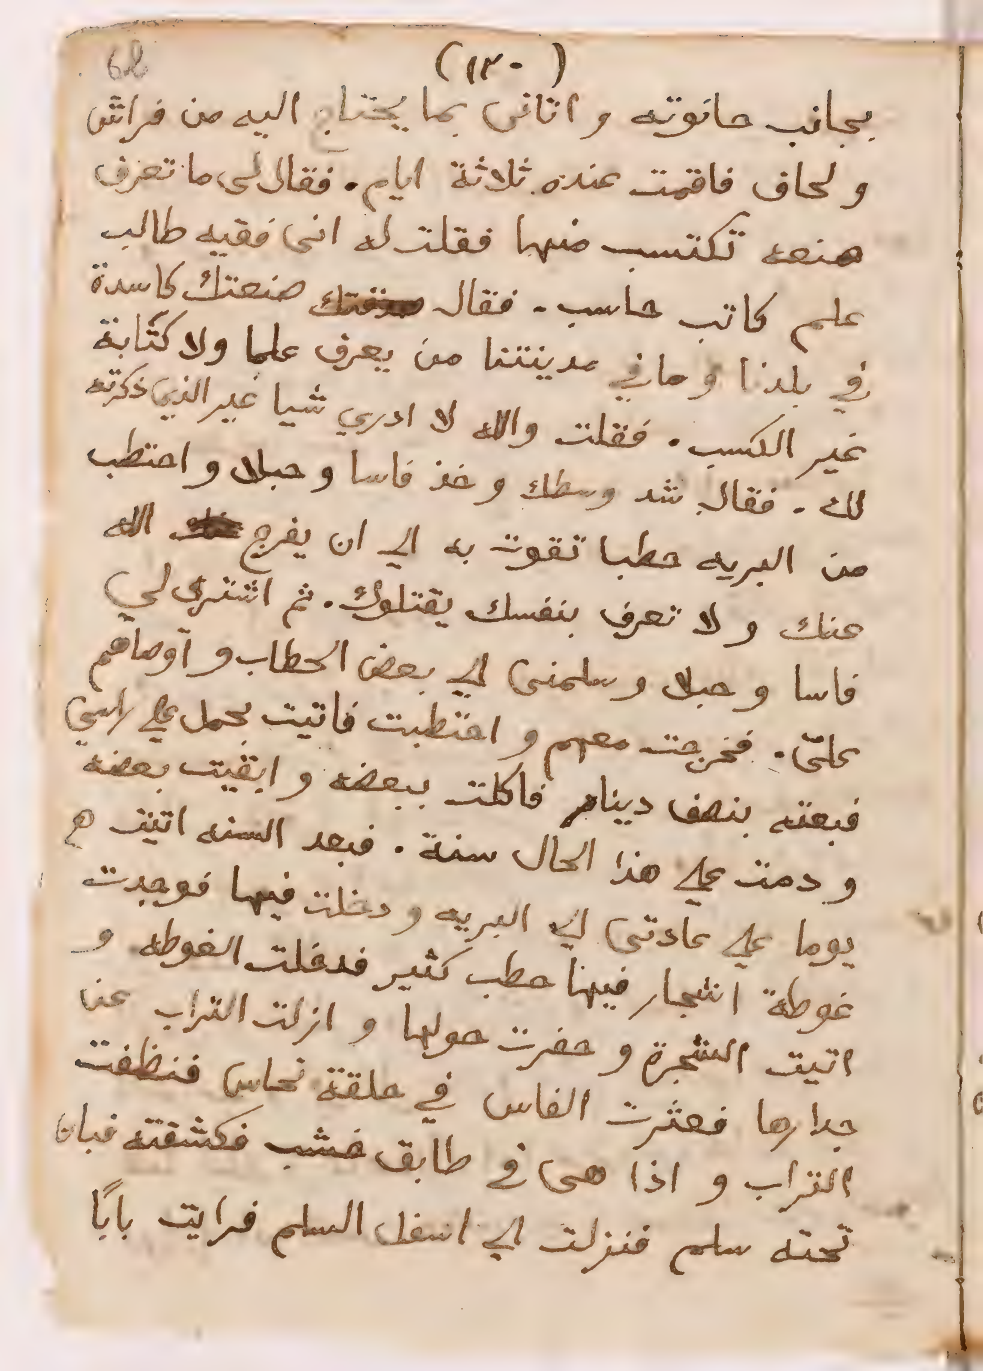 68
(١٣٠)
بجانب حانوته و اتانى بما يحتاج اليه من فراش
و لحاف فاقمت عنده ثلاثة ايام. فقال لى ما تعرف
صنعه تكتسب منها فقلت له انى فقيه طالب
علم كاتب حاسب. فقال صنعتك كاسدة
في بلدنا و ما في مدينتنا من يعرف علما ولا كتابة
غير الكسب. فقلت والله لا ادري شيا غير الذي ذكرته
لك. فقال شد وسطك و خذ فاسا و حبلا و احتطب
من البريه حطبا تقوت به الى ان يفرج الله
عنك و لا تعرف بنفسك يقتلوك. ثم اشترى لي
فاسا و حبلا و سلمنى الي بعض الحطاب و آوصاهم
علىّ. فخرجت معهم و احتطبت فاتيت بحمل علي راسي
فبعته بنصف دينار فاكلت ببعضه و ابقيت بعضه
و دمت علي هذا الحال سنة. فبعد السنه اتيت
يوما علي عادتى الي البريه و دخلت فيها فوجدت
غوطة اشجار فيها حطب كثير فدخلت الغوطه و
اتيت الشجرة و حفرت حولها و ازلت التراب عن
جدارها فعثرت الفاس في حلقة نحاس فنظفت
التراب و اذا هى في طابق خشب فكشفته فبان
تحته سلم فنزلت الي اسفل السلم فرايت بابًا